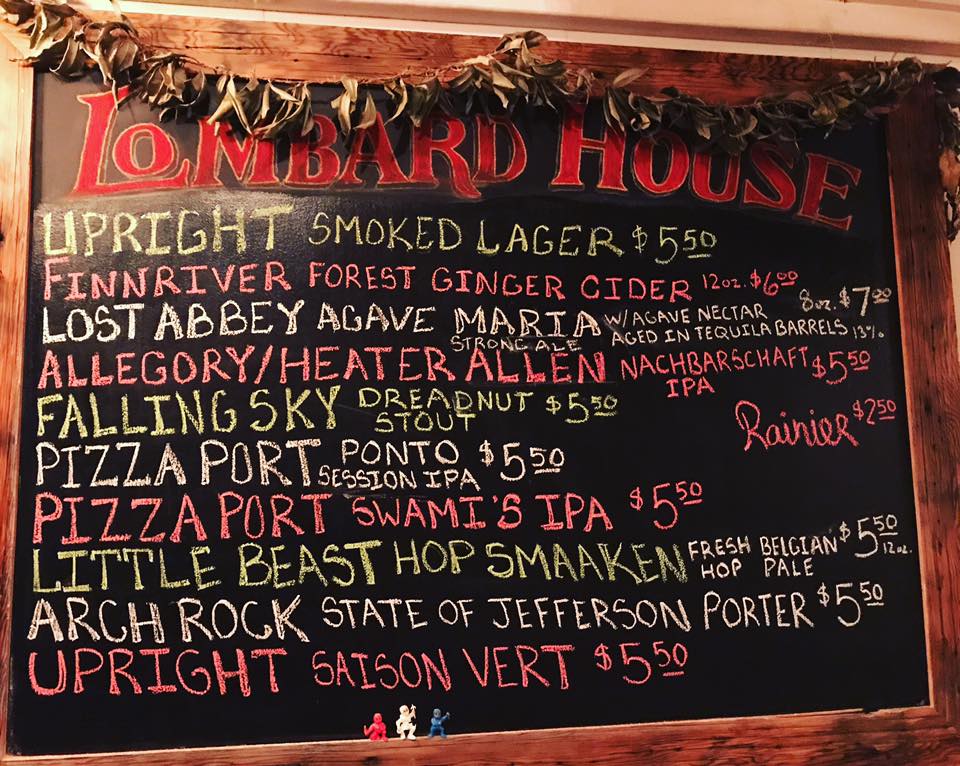 LOMBARD HOUSE
UPRIGHT SMOKED LAGER $5.50
FINNRIVER FOREST GINGER CIDER 12oz. $6.00
LOST ABBEY AGAVE MARIA W/AGAVE NECTAR 8oz. $7.00
STRONG ALE AGED IN TEQUILA BARRELS 13%
ALLEGORY/HEATER ALLEN NACHBARSCHAFT $5.50
IPA
FALLING SKY DREADNUT $5.50
STOUT
Rainier $2.50
PIZZA PORT PONTO $5.50
SESSION IPA
PIZZA PORT SWAMI'S IPA $5.50
LITTLE BEAST HOP SMAAKEN FRESH BELGIAN $5.50
HOP PALE 12oz.
ARCH ROCK STATE OF JEFFERSON PORTER $5.50
UPRIGHT SAISON VERT $5.50